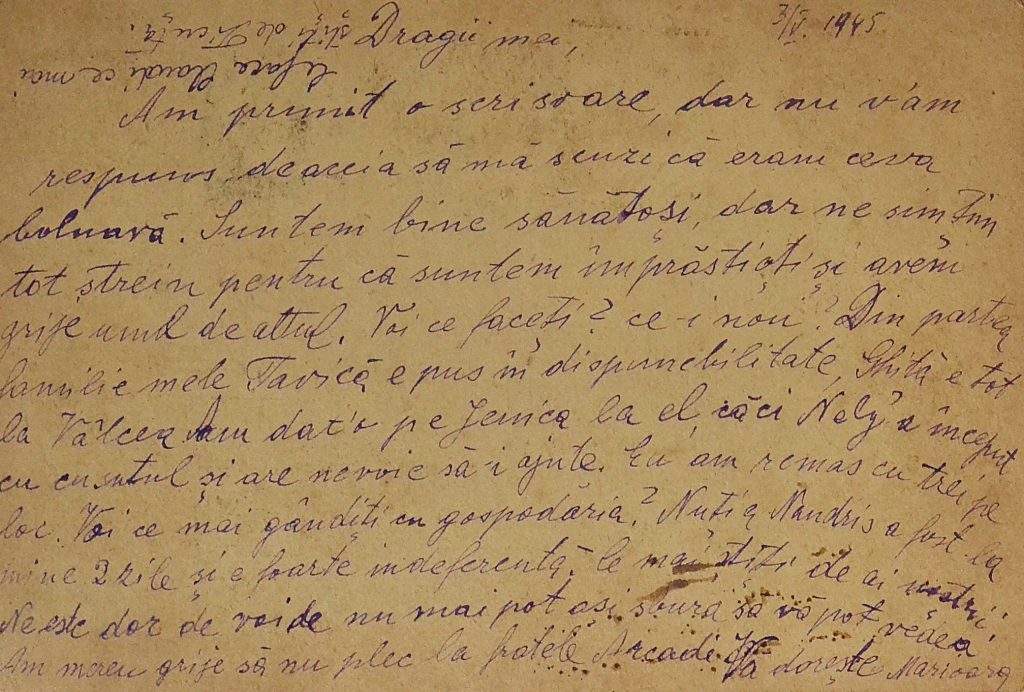 3/V. 1945
Dragii mei,
Am primit o scrisoare, dar nu v'am
respuns deaceia să mă scuzi că eram ceva
bolnavă. Suntem bine sănătoși, dar ne simțim
tot strein pentru că suntem împrăștiați și avem
grije unul de altul. Voi ce faceți? ce-i nou? Din partea
familie mele Tavică e pus în dispunebilitate, Ghiță e tot
la Vâlcea Am dat'o pe Jenica la el, căci Nely a început
cu cusutul și are nevoie să-i ajute. Eu am remas cu trei pe
loc. Voi ce mai gândiți cu gospodăria? Nuția Nandris a fost la
mine 2 zile și e foarte indeferentă. Ce mai știți de ai noștrii.
Ne este dor de voi de nu mai pot ași sbura să vă pot vedea
Am mereu grije să nu plec la fratele Arcadi Vă dorește Marioara
Ce face Claudi ce mai
știți de